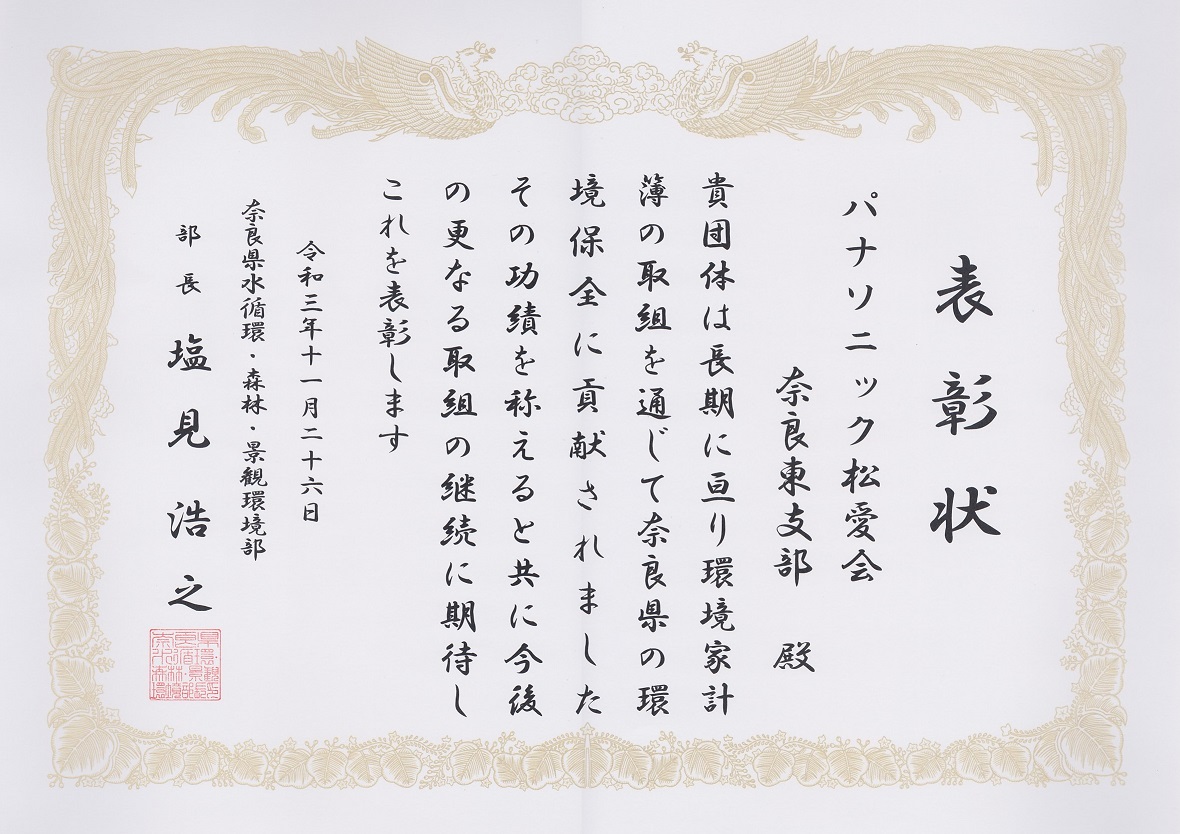 表彰状
パナソニック松愛会
奈良東支部 殿
貴団体は長期に亘り環境家計
簿の取組を通じて奈良県の環
境保全に貢献されました
その功績を称えると共に今後
の更なる取組の継続に期待し
これを表彰します
令和三年十一月二十六日
奈良県水循環・森林・景観環境部
部長 塩見浩之